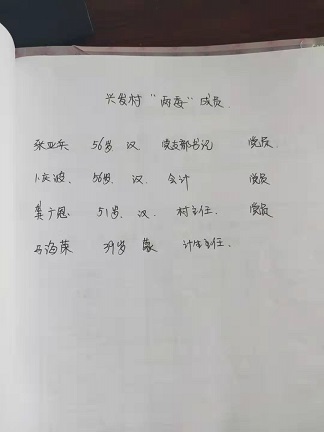 兴发村“两委”成员
张亚东 56岁 汉 党支部书记 党员
卜庆波 56岁. 汉. 会计 党员
龚广恩 51岁. 汉. 村主任. 党员
马海荣 39岁 蒙 计生主任.